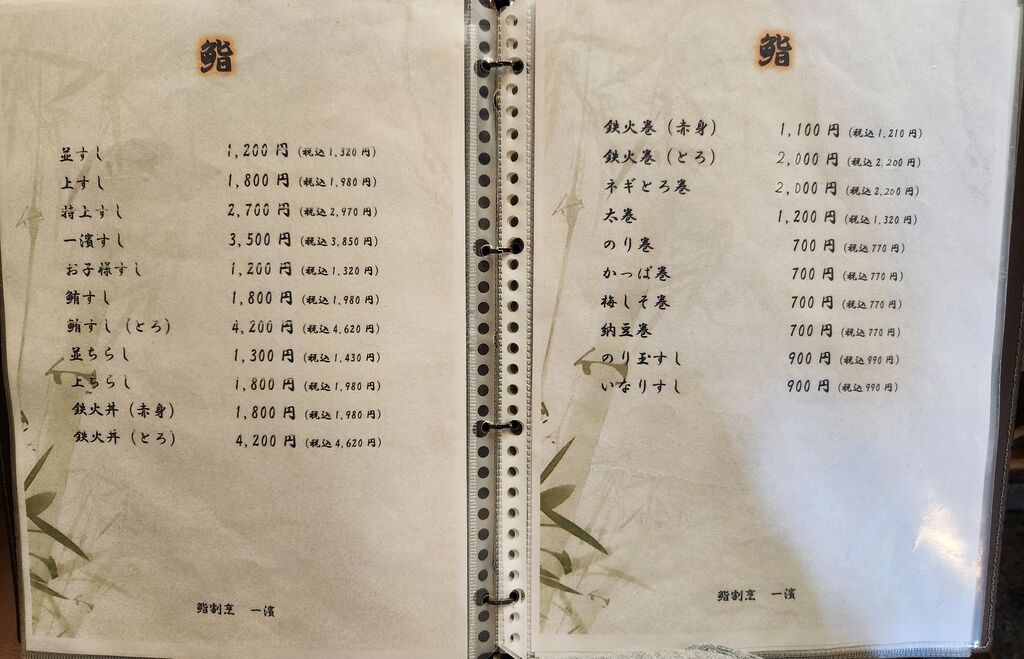 鮨
並すし 1,200 円 (税込 1,320 円)
上すし 1,800 円 (税込 1,980 円)
特上すし 2,700 円 (税込 2,970 円)
一濱すし 3,500 円 (税込 3,850 円)
お子様すし 1,200 円 (税込 1,320 円)
鮪すし 1,800 円 (税込 1,980 円)
鮪すし (とろ) 4,200 円 (税込 4,620 円)
並ちらし 1,300 円 (税込 1,430 円)
上ちらし 1,800 円 (税込 1,980 円)
鉄火丼 (赤身) 1,800 円 (税込 1,980 円)
鉄火丼 (とろ) 4,200 円 (税込 4,620 円)
鮨割烹 一濱
鮨
鉄火巻 (赤身) 1,100 円 (税込 1,210 円)
鉄火巻 (とろ) 2,000 円 (税込 2,200 円)
ネギとろ巻 2,000 円 (税込 2,200 円)
太巻 1,200 円 (税込 1,320 円)
のり巻 700 円 (税込 770 円)
かっぱ巻 700 円 (税込 770 円)
梅しそ巻 700 円 (税込 770 円)
納豆巻 700 円 (税込 770 円)
のり玉すし 900 円 (税込 990 円)
いなりすし 900 円 (税込 990 円)
鮨割烹 一濱